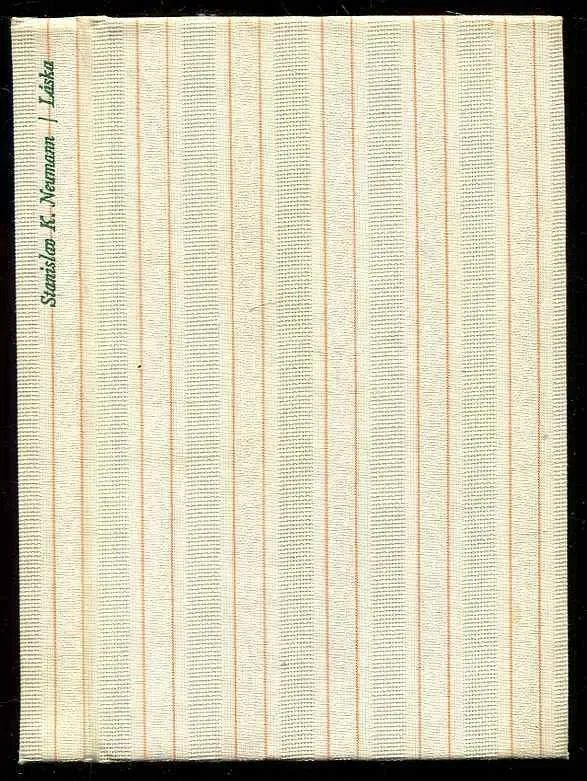 Stanislav K. Neumann | Láska